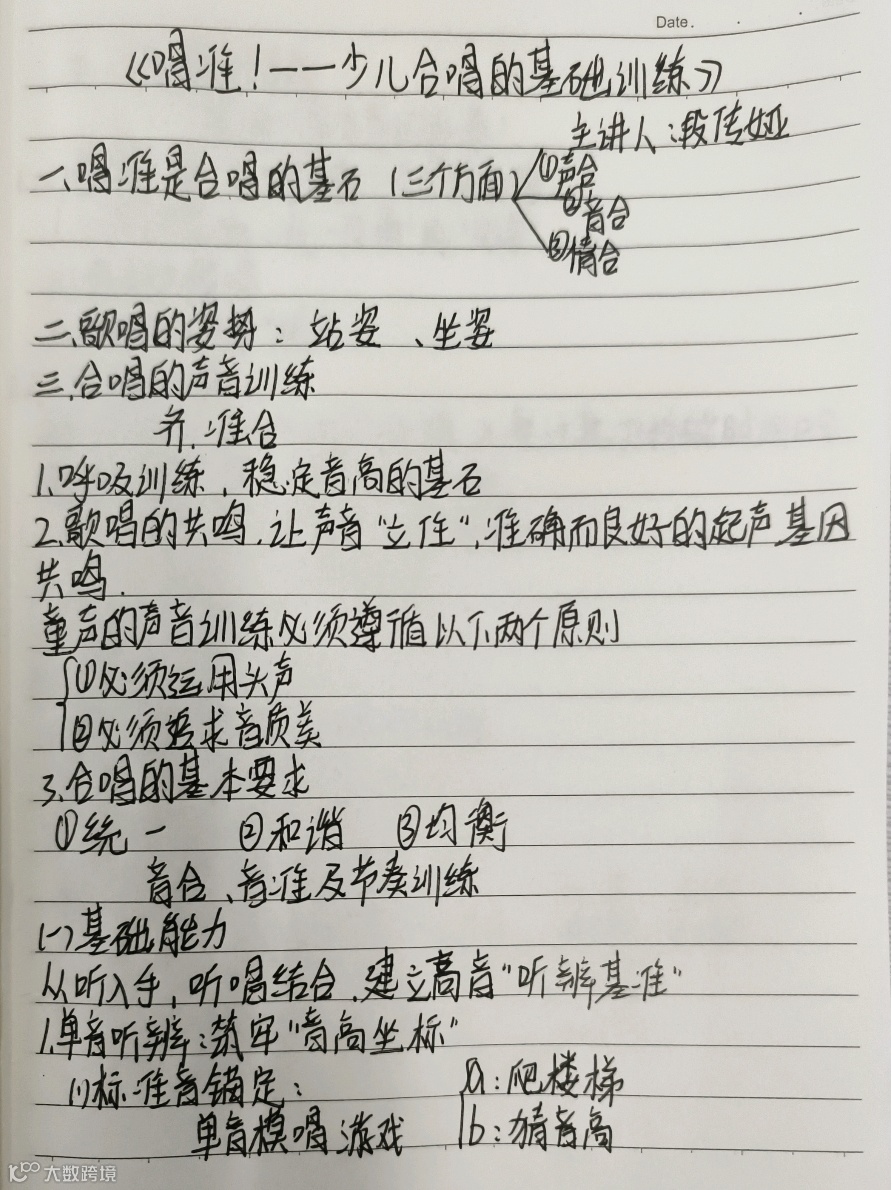 Date.
《唱准！——少儿合唱的基础训练》
主讲人：段传娅
一、唱准是合唱的基石（三个方面）①声合
②音合
③情合
二、歌唱的姿势：站姿、坐姿
三、合唱的声音训练
齐、准合
1、呼吸训练，稳定音高的基石
2、歌唱的共鸣，让声音“立住”，准确而良好的起声基因
共鸣.
童声的声音训练必须遵循以下两个原则
①必须运用头声
②必须追求音质美
3、合唱的基本要求
①统一 ②和谐 ③均衡
音合、音准及节奏训练
(一)基础能力
从听入手，听唱结合，建立高音“听辨基准”
1、单音听辨：筑牢“音高坐标”
(1)标准音锚定： a：爬楼梯
单音模唱游戏 b：猜音高
大数跨境